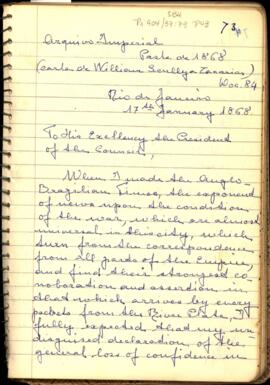 SBH
Pi 404/57:79 P43
73
Arquivo Imperial
Pasta de 1868
(carta de William Scully a Zacarias)
Doc. 84
Rio de Janeiro
17th January 1868
To His Excellency the President
of the Council,
When I made the Anglo-
Brazilian Times, the exponent
of views upon the condition
of the war, which are almost
universal in this city, which
turn from the correspondence
from all parts of the Empire,
and find their strongest co-
roboration and assertion in
that which arrives by every
packets from the River Plate, I
fully expected that my un
disguised declaration of the
general loss of confidence in